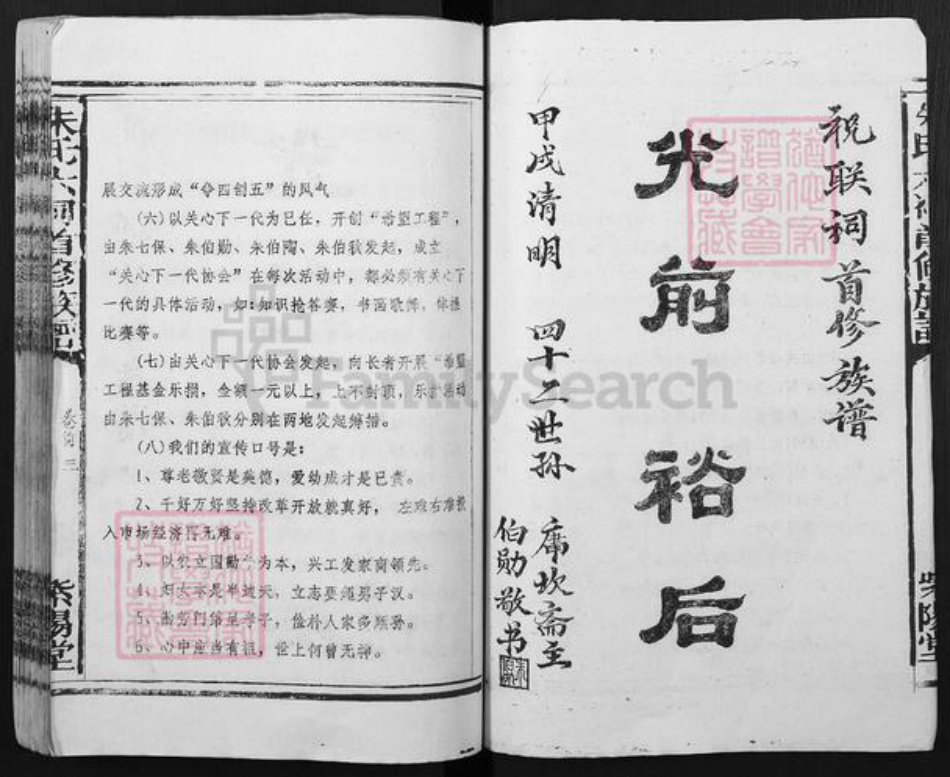 祝联祠首修族谱
光前裕后
甲戌清明 四十二世孙
席坎斋主
伯勋敬书
朱氏六祠首修族谱
卷首 三
紫阳堂
展交流形成“夸四创五”的风气
(六)以关心下一代为已任,开创“希望工程”,
由朱七保、朱伯勋、朱伯陶、朱伯秋发起,成立
“关心下一代协会”在每次活动中,都必须有关心下
一代的具体活动,如:知识抢答赛,书画歌舞,体操
比赛等。
(七)由关心下一代协会发起,向长者开展“希望
工程基金乐捐,金额一元以上,上不封顶,乐捐活动
由朱七保、朱伯秋分别在两地发起筹措。
(八)我们的宣传口号是:
1、尊老敬贤是美德,爱幼成才是已责。
2、千好万好坚持改革开放就真好, 左难右难投
入市场经济何无难。
3、以农立国勤为本,兴工发家商领先。
4、妇女本是半边天,立志要超男子汉。
5、勤劳门第,俭朴人家多顺孙。
6、心中应当有祖,世上何曾无神。
FamilySearch